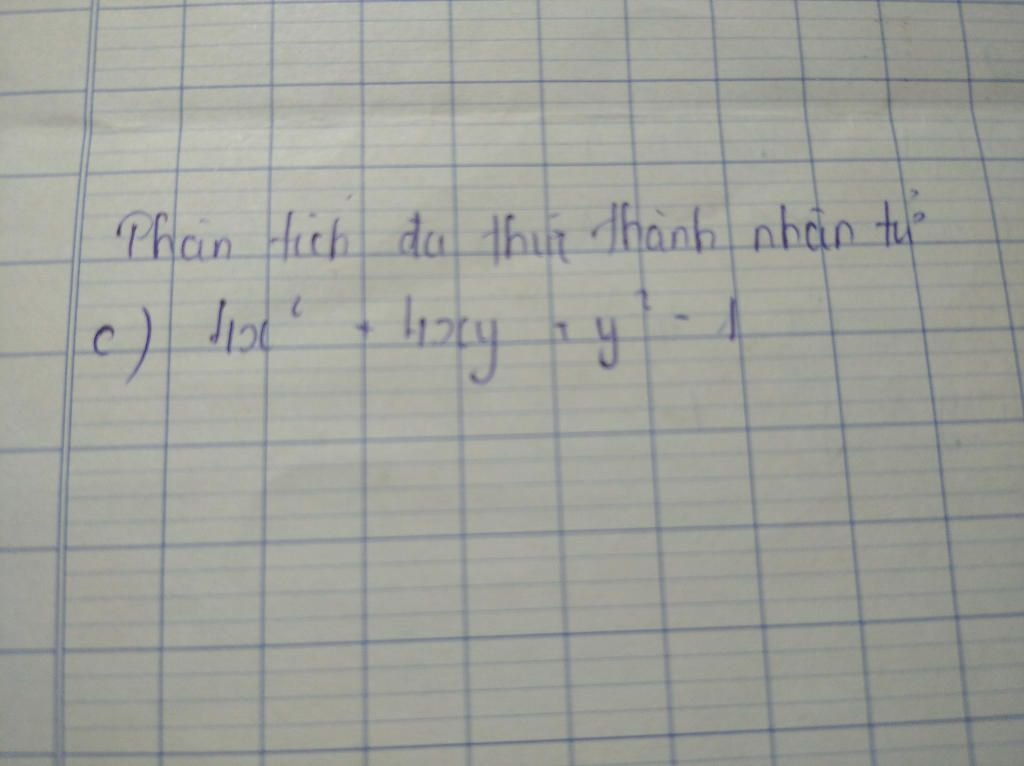 Phân tích đa thức thành nhân tử
c) 4x² + 4xy + y² - 1